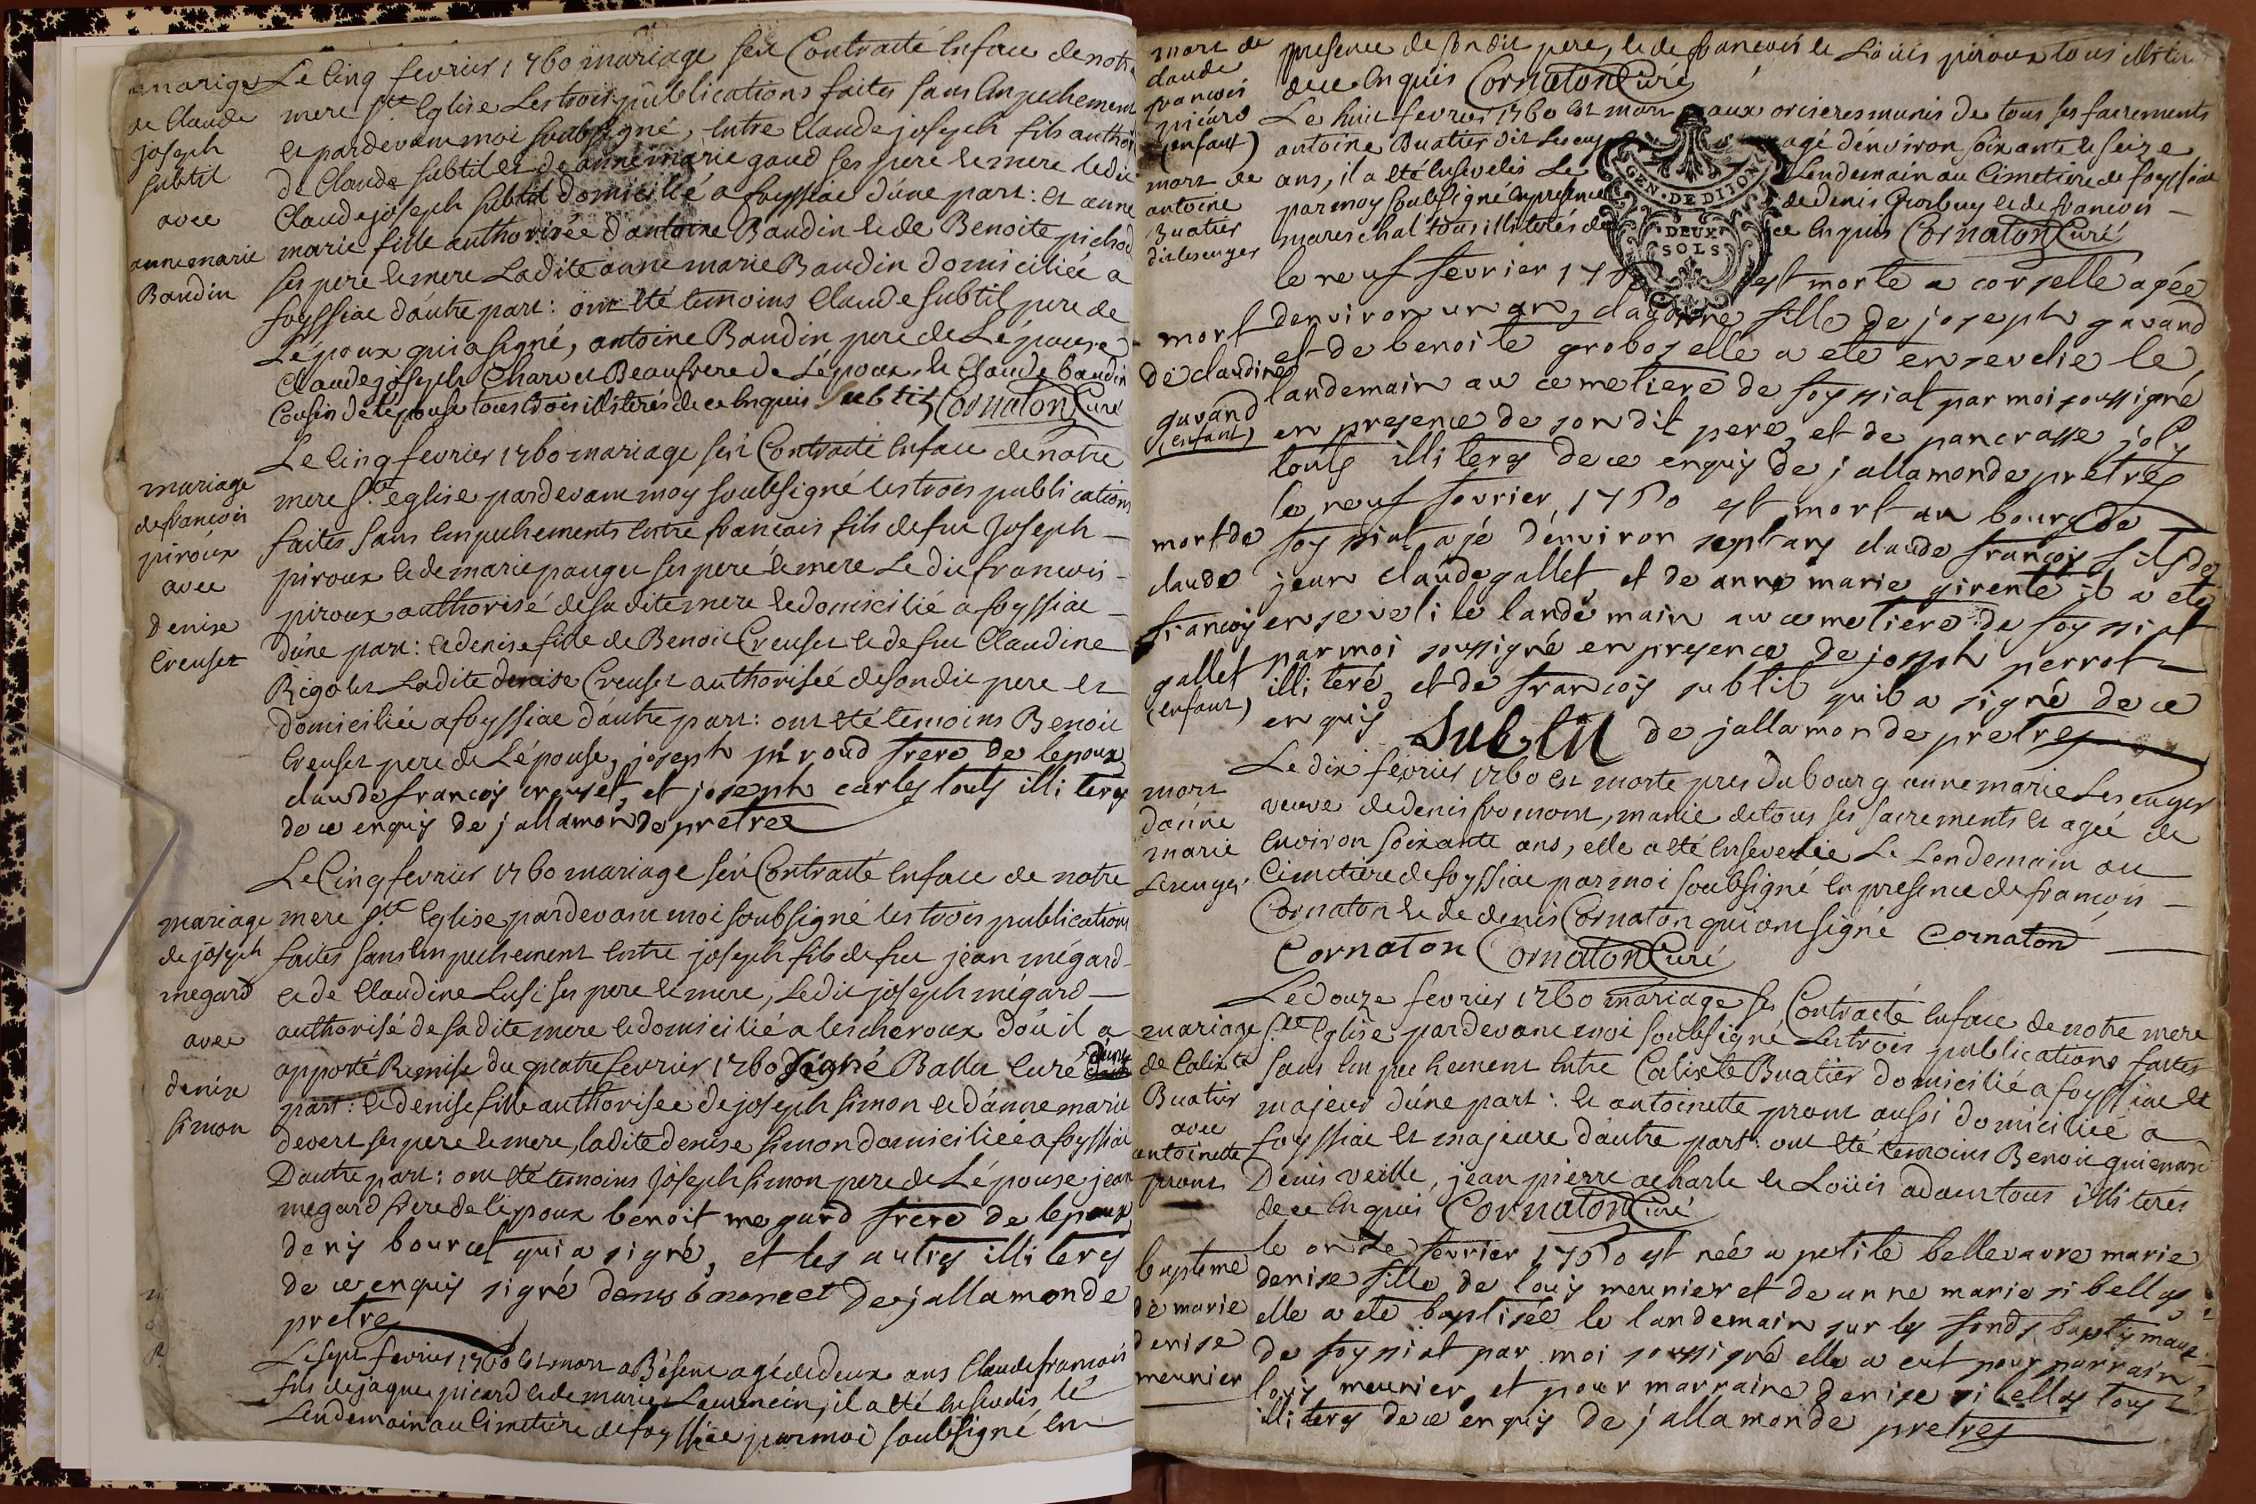 marige
de Claude
joseph
subtil
avec
anne marie
Baudin
Le Cinq fevrier 1760 mariage feu Contracté en face de notre
mere Ste Eglise Les trois publications faites sans Enpechement
et pardevant moi soubsigné, Entre Claude joseph fils authori
de Claude subtil et de anne marie gaud ses pere et mere ledit
Claude joseph subtil domicilié a foyssiac d'une part: et anne
marie fille authorisée d'antoine Baudin et de Benoite pichod
ses pere et mere Ladite anne marie Baudin domiciliée a
foyssiac d'autre part: ont été temoins Claude subtil pere de
L'époux qui a signé, antoine Baudin pere de L'épouse
Claude joseph Charvet Beaufrere de L'époux, et Claude baudin
Cousin de l'épouse tous trois illiterés de ce Enquis Subtil Cornaton Curé
mariage
de francois
piroux
avec
Denise
Creuset
Le Cinq fevrier 1760 mariage feu Contracté en face de notre
mere Ste eglise pardevant moy soubsigné les trois publications
faites sans Enpechements Entre francois fils de feu Joseph
piroux et de marie pauget ses pere et mere Ledit francois
piroux authorisé de sa dite mere et domicilié a foyssiac
d'une part: et denise fille de Benoit Creuset et de feu Claudine
Rigolet Ladite denise Creuset authorisée de son dit pere et
domiciliée a foyssiac d'autre part: ont été temoins Benoit
Creuset pere de L'épouse, joseph piroud frere de lepoux
claude francoy creuset, et joseph carles touts illi terez
de ce enquis de jallamonde pretre
mariage
de joseph
megard
avec
denise
simon
Le Cinq fevrier 1760 mariage feu Contracté en face de notre
mere Ste Eglise pardevant moi soubsigné les trois publications
faites sans Enpechement Entre joseph fils de feu jean mégard
et de Claudine Lusi ses pere et mere, Ledit joseph mégard
authorisé de sa dite mere et domicilié a lescheroux d'où il a
apporté Remise du quatre fevrier 1760 signé Ballu Curé d'une
part: et denise fille authorisée de joseph simon et d'anne marie
devert ses pere et mere, ladite denise simon domiciliée a foyssiac
D'autre part: ont été temoins Joseph simon pere de L'épouse jean
megard frere de lepoux benoit megard frere de lepoux
denis bourcet qui a signé, et les autres illi terez
de ce enquis signé denis bourcet Dejallamonde
pretre
Le sept fevrier 1760 est mort a Besene agé de deux ans Claude francois
fils de jaque picard et de marie Laurencin, il a été Enseveli le
Lendemain au Cimetiere de foyssiac par moi soubsigné En
mort de
claude
francois
picard
(enfant)
presence de son dit pere, et de francois et Loüis piroux tous illiter
de ce Enquis Cornaton Curé
mort de
antoine
Buatier
dit lesenges
Le huit fevrier 1760 est mort aux orcieres munis de tous ses sacrements
antoine Buatier dit Leseng agé d'environ soixante et seize
ans, il a été Enseveli Le Lendemain au Cimetiere de foyssiac
par moy soubsigné En presence de denis Grosbuy et de francois
mareschal tous illiterés de ce Enquis Cornaton Curé
GEN. DE DIJON
DEUX
SOLS
mort
de claudine
gavand
(enfant)
le neuf fevrier 17 est morte a corselle agée
denviron un an, claudine fille de joseph gavand
et de benoite grobozelle a ete ensevelie le
landemain au cemetiere de foyssiat par moi soussigné
en presence de son dit pere, et de pancrasse joly
touts illi terez de ce enquis de jallamonde pretre
mort de
claude
francoy
gallet
(enfant)
le neuf fevrier 1760 est mort au bourg de
foyssiat agé d'environ sept ans claude francois fils de
jean claude gallet et de anne marie girente il a ete
enseveli le landemain au cemetiere de foyssiat
par moi soussigné en presence de joseph perrot
illi teré, et de francois subtil qui a signé de ce
enquis Subtil de jallamonde pretre
mort
d'anne
marie
Lesenges
Le dix fevrier 1760 est morte pres du bourg anne marie Lesenges
veuve de denis fromont, munie de tous ses sacrements et agée de
Environ soixante ans, elle a été Ensevelie Le Lendemain au
Cimetiere de foyssiac par moi soubsigné En presence de francois
Cornaton et de denis Cornaton qui ont signé Cornaton
Cornaton Cornaton Curé
mariage
de Calixte
Buatier
avec
antoinette
pront
Le douze fevrier 1760 mariage feu Contracté En face de notre mere
Ste Eglise pardevant moi soubsigné Les trois publications faites
sans Enpechement Entre Calixte Buatier domicilié a foyssiac et
majeur d'une part: et antoinette pront aussi domiciliée a
foyssiac et majeure d'autre part: ont été temoins Benoit guienard
Denis veille, jean pierre acharle et Loüis adam tous illiterés
de ce Enquis Cornaton Curé
baptême
de marie
denise
meunier
le onze fevrier 1760 est née a petite bellevavre marie
denise fille de louis meunier et de anne marie sibellas
elle a ete baptisée le landemain sur les fonds baptismaux
de foyssiat par moi soussigné elle a eut pour parrain
louis meunier, et pour marraine denise sibellas tous
illi terez de ce enquis de jallamonde pretre